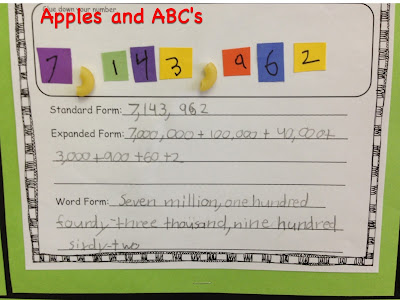 Apples and ABC's
Glue down your number.
7 1 4 3 9 6 2
Standard Form: 7,143,962
Expanded Form: 7,000,000 + 100,000 + 40,000+
3,000+900+60+2
Word Form: Seven million, one hundred
fourdy-three thousand, nine hundred
sixdy-two